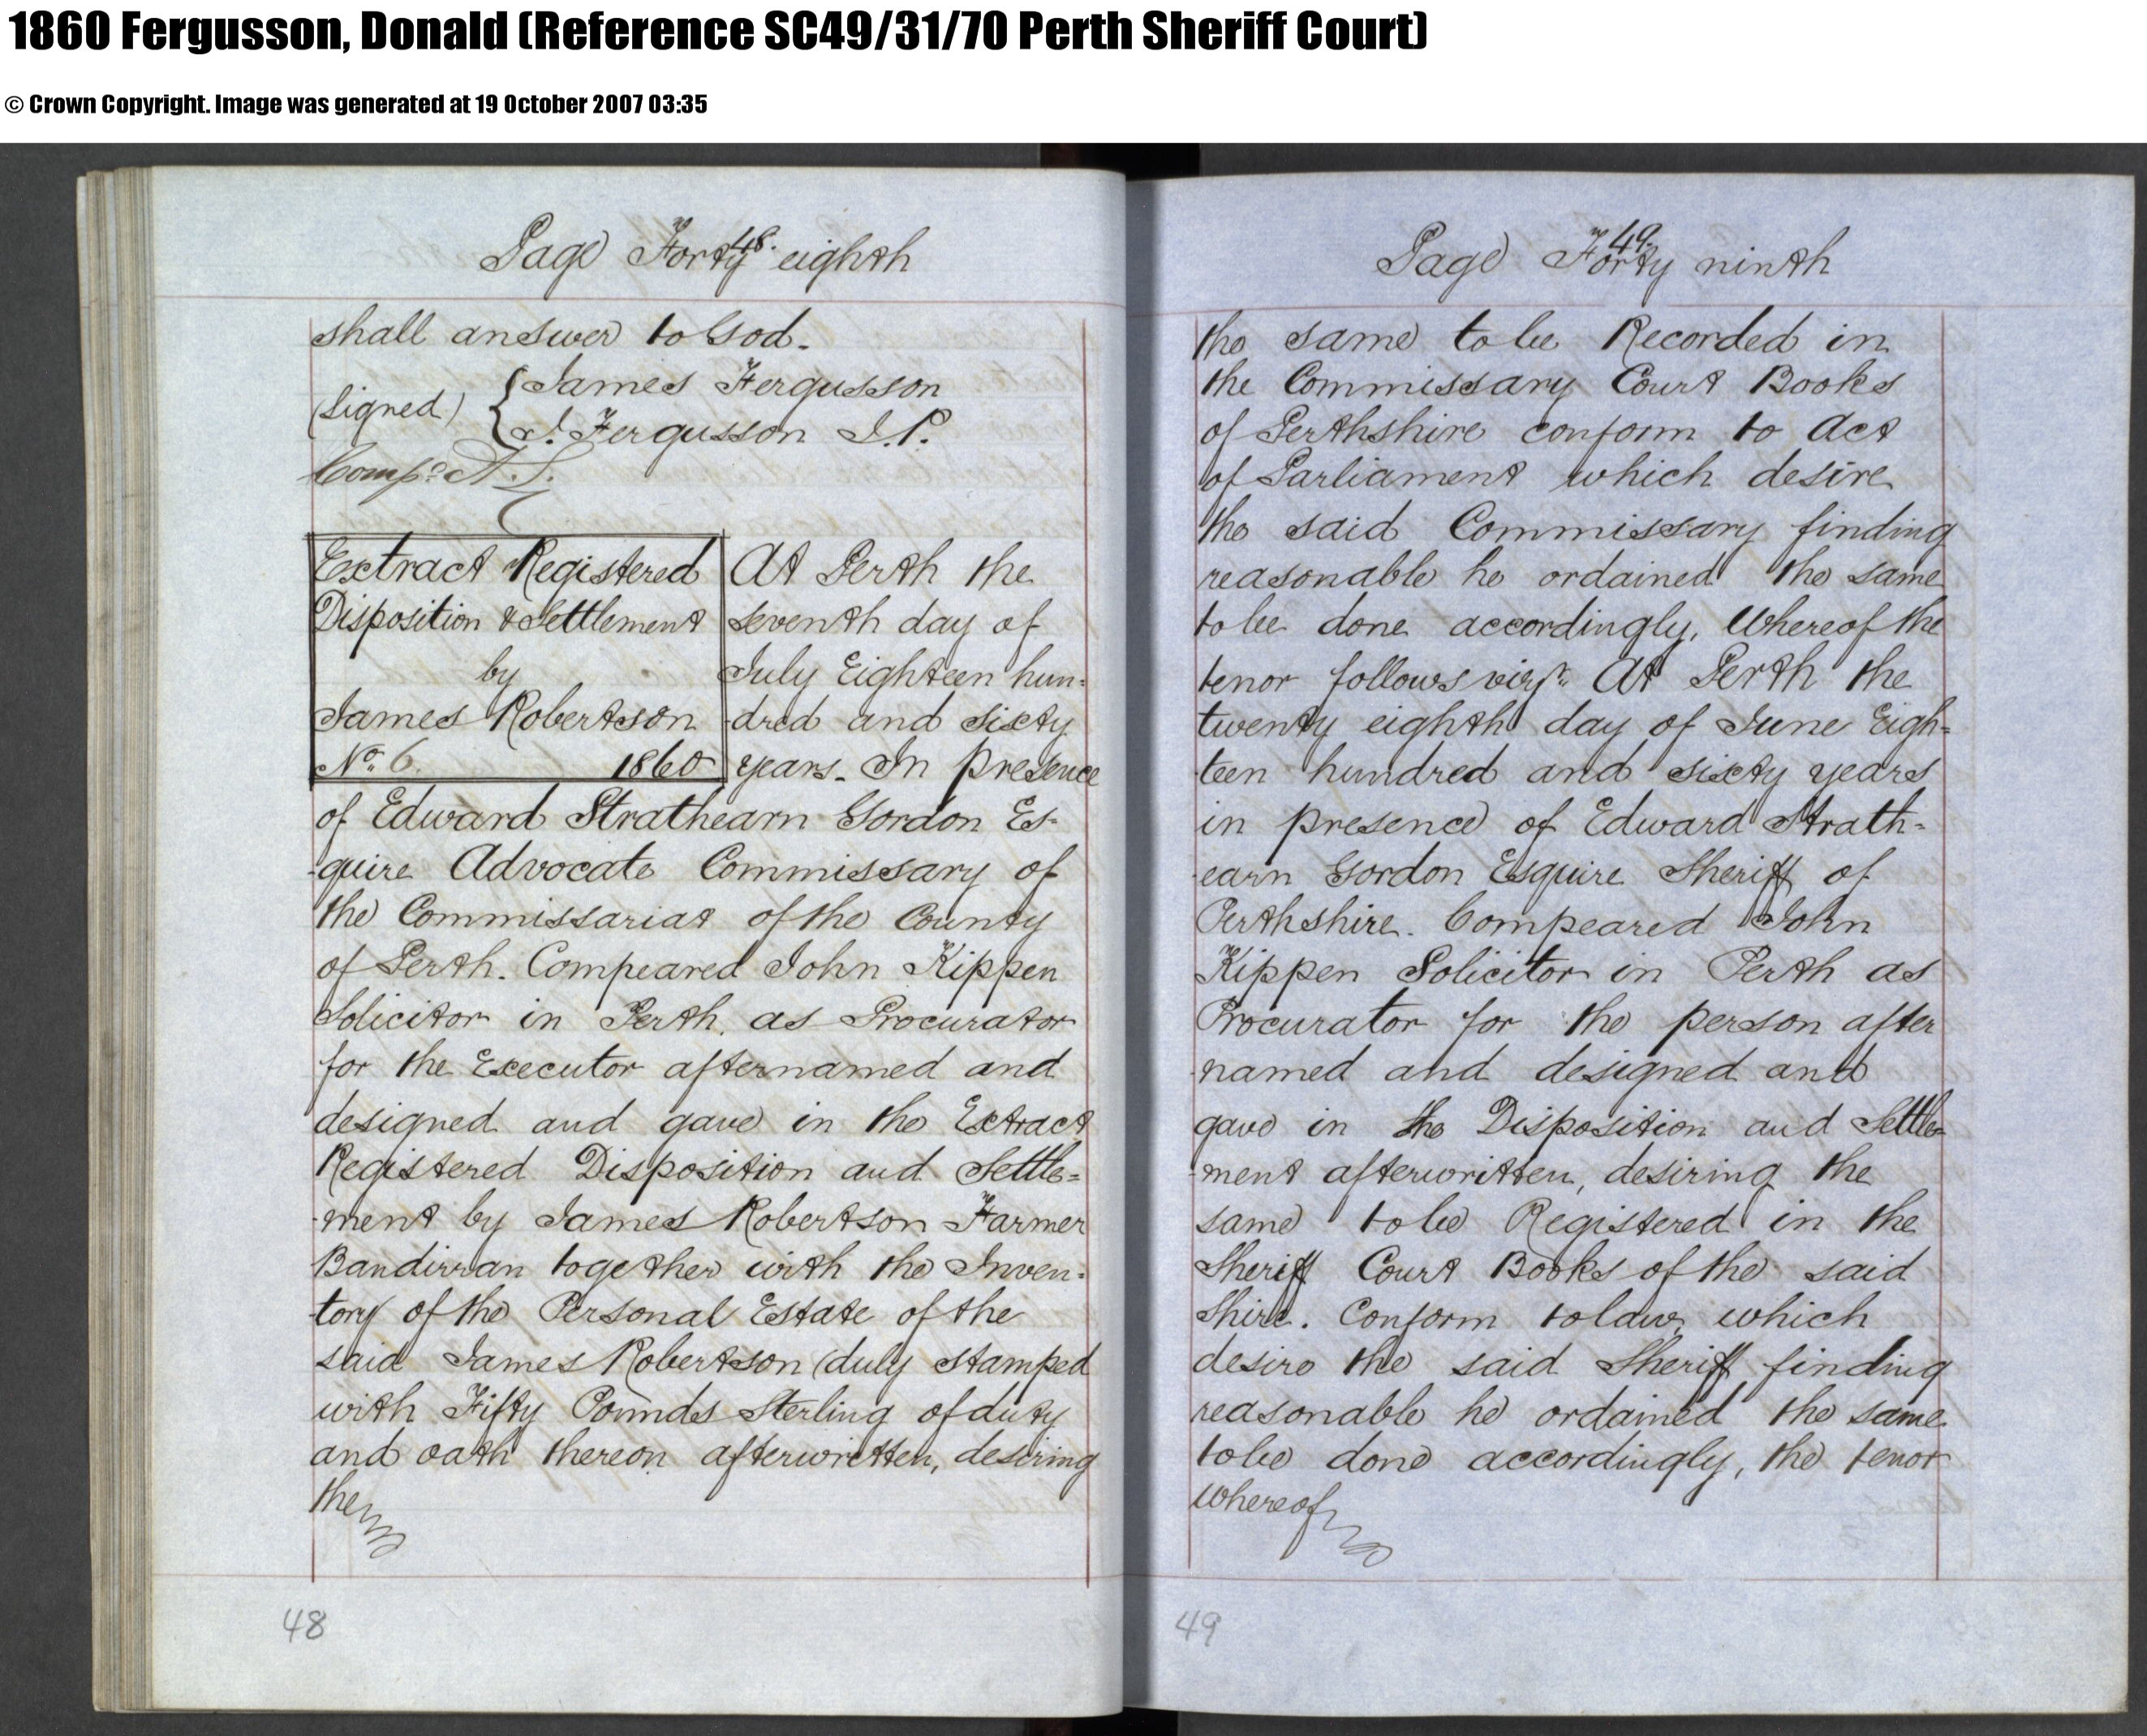 1860 Fergusson, Donald (Reference SC49/31/70 Perth Sheriff Court)
© Crown Copyright. Image was generated at 19 October 2007 03:35
48.
Page Forty eighth
shall answer to God.
(Signed) { James Fergusson
J. Fergusson J.P.
Comp.d
Extract Registered
Disposition & Settlement
by
James Robertson
No. 6. 1860
At Perth the
seventh day of
July Eighteen hun-
-dred and sixty
years. In presence
of Edward Strathearn Gordon Es-
-quire Advocate Commissary of
the Commissariat of the County
of Perth. Compeared John Kippen
Solicitor in Perth, as Procurator
for the Executor afternamed and
designed and gave in the Extract
Registered Disposition and Settle=
-ment by James Robertson Farmer
Bandirran together with the Inven-
-tory of the Personal Estate of the
said James Robertson (duly stamped
with Fifty Pounds Sterling of duty
and oath thereon afterwritten, desiring
the
48
49.
Page Forty ninth
the same to be Recorded in
the Commissary Court Books
of Perthshire conform to Act
of Parliament which desire
the said Commissary finding
reasonable he ordained the same
to be done accordingly, Whereof the
tenor follows vizt. At Perth the
twenty eighth day of June Eigh-
-teen hundred and sixty years
in presence of Edward Strath-
-earn Gordon Esquire Sheriff of
Perthshire. Compeared John
Kippen Solicitor in Perth as
Procurator for the person after
named and designed and
gave in the Disposition and Settle-
-ment afterwritten, desiring the
same to be Registered in the
Sheriff Court Books of the said
Shire. Conform to law, which
desire the said Sheriff finding
reasonable he ordained the same
to be done accordingly, the tenor
whereof
49